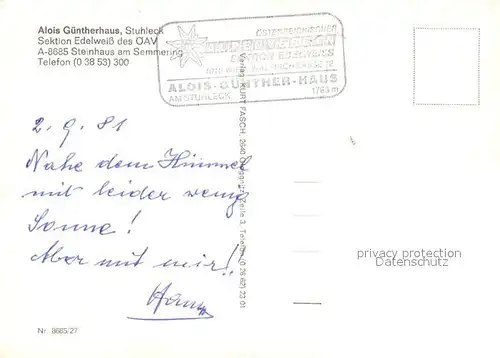 Alois Güntherhaus, Stuhleck
Sektion Edelweiß des ÖAV
A-8685 Steinhaus am Semmering
Telefon (0 38 53) 300
ÖSTERREICHISCHER
ALPENVEREIN
SEKTION EDELWEISS
ALOIS-GÜNTHER-HAUS
AM STUHLECK 1783 m
Verlag KURT FASCH, 2640 Zeile 3, Telefon (0 26 62) 23 01
2. 9. 81
Nahe dem Himmel
mit leider wenig
Sonne!
Aber mit mir!!
privacy protection
Datenschutz
Nr. 8685/27